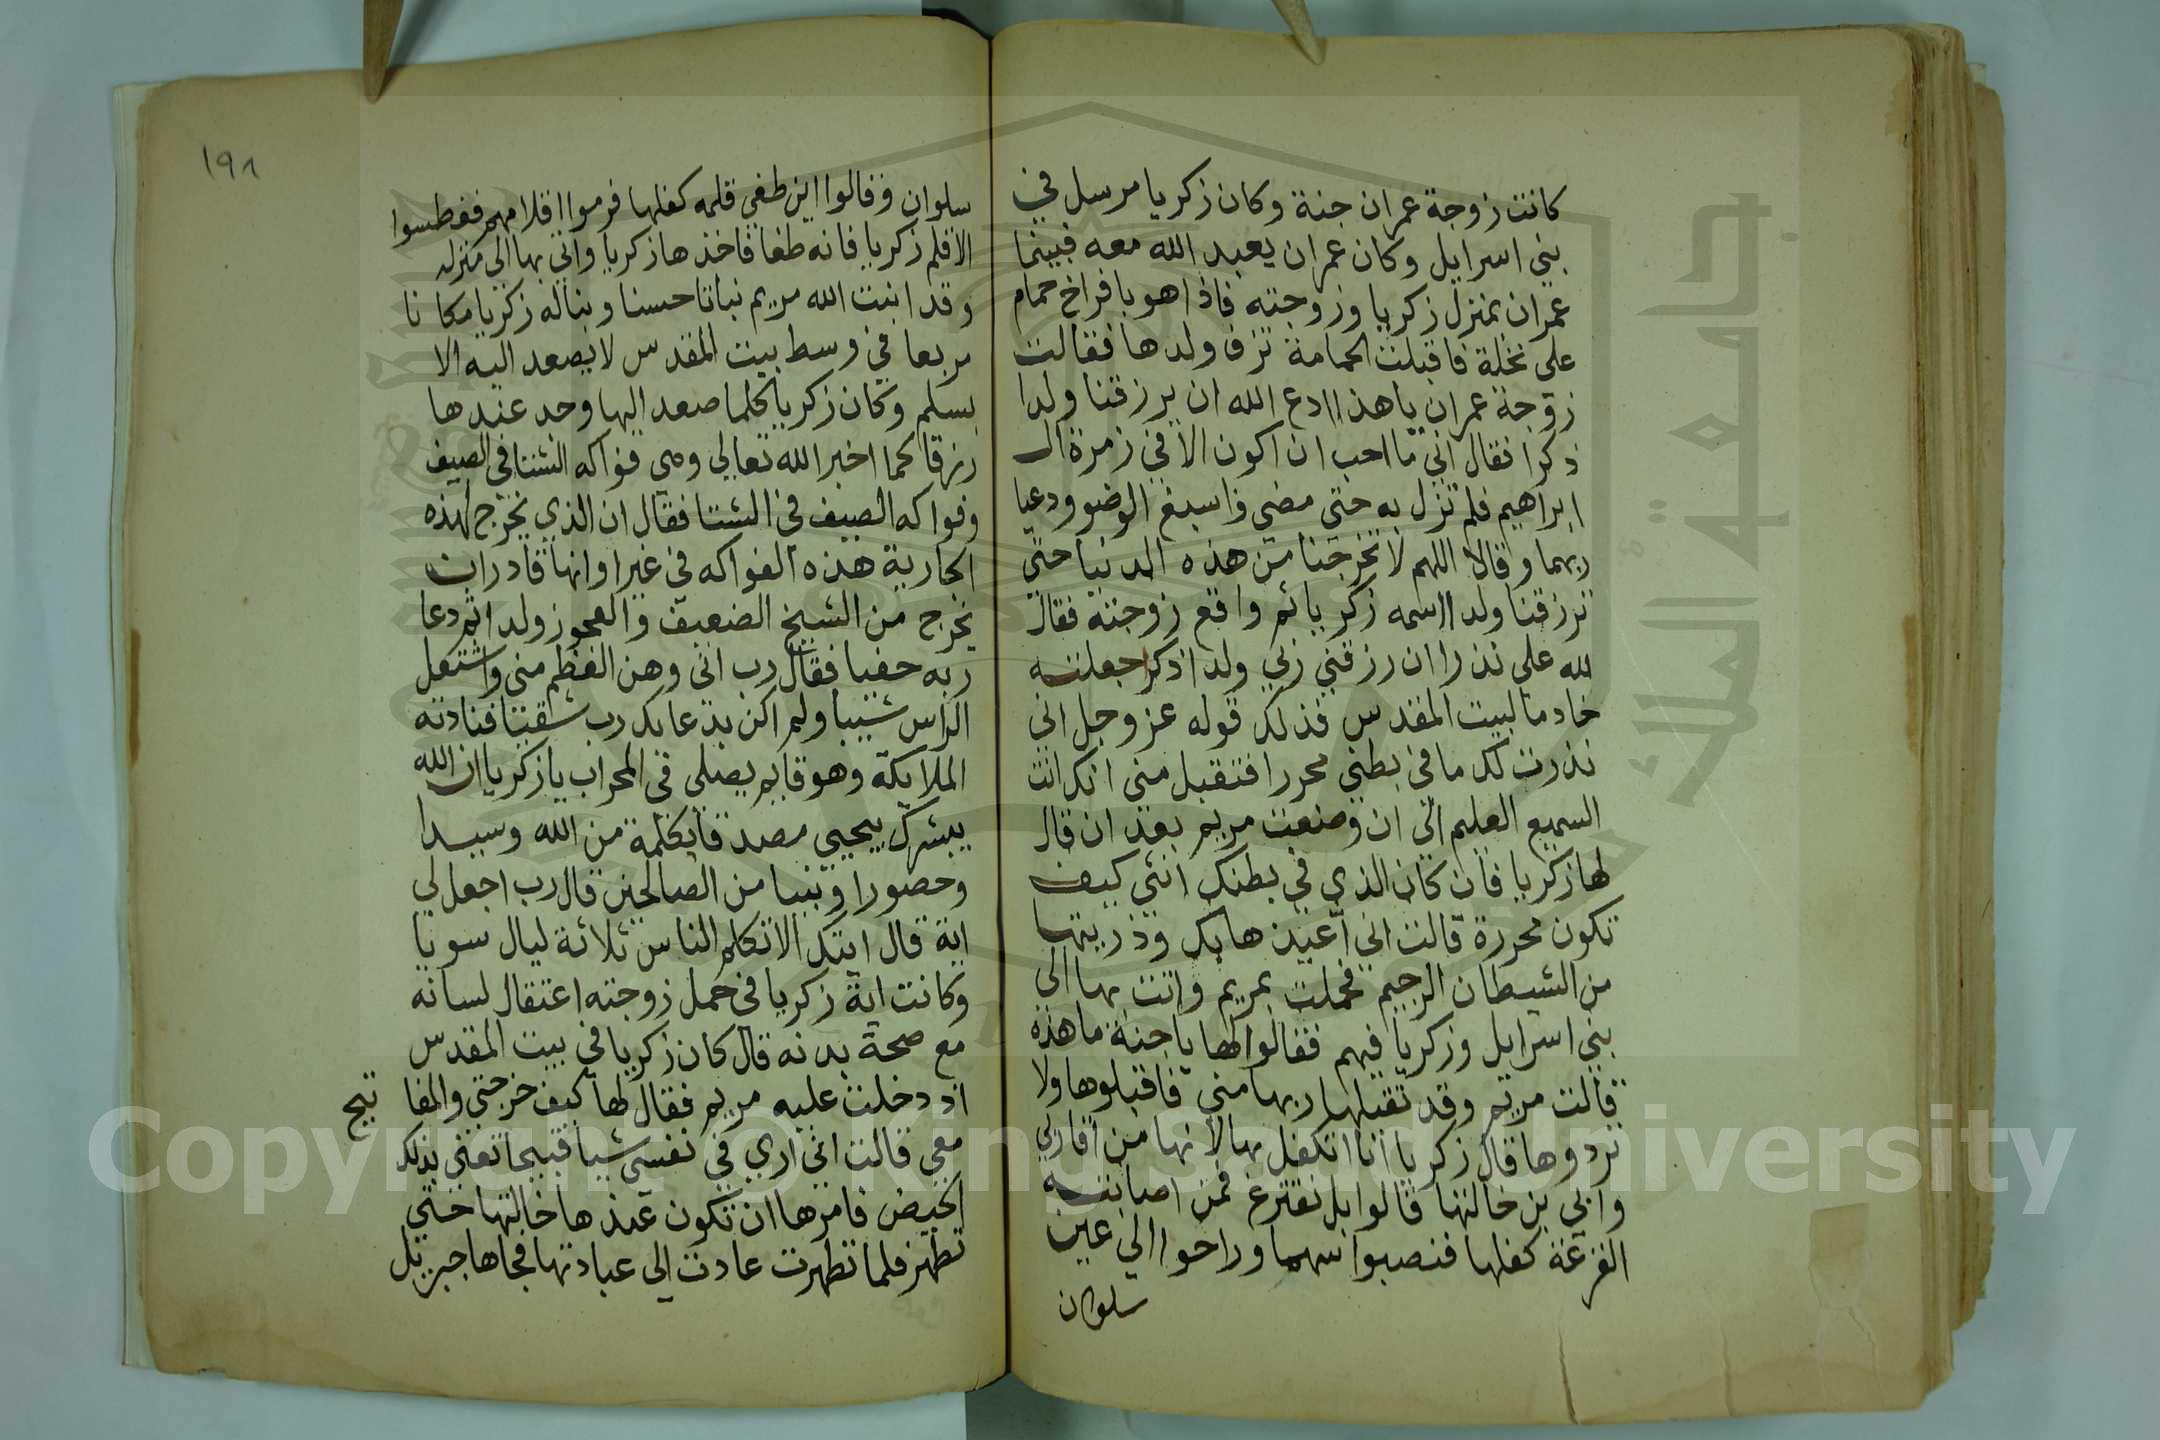 كانت زوجة عمران جنة وكان زكريا مرسل في
بني اسرايل وكان عمران يعبد الله معه فبينما
عمران بمنزل زكريا وزوجته فاذا هو بافراخ حمام
على نخلة فاقبلت الحمامة تزف ولدها فقالت
زوجة عمران يا هذا ادع الله ان يرزقنا ولدا
ذكرا فقال اني ما احب ان اكون الا في زمرة ال
ابراهيم فلم تزل به حتي مضي فاسبغ الوضو ودعيا
ربهما وقالا اللهم لا تخرجنا من هذه الدنيا حتي
ترزقنا ولدا اسمه زكريا ثم واقع زوجته فقال
لله علي نذرا ان رزقني ربي ولدا ذكرا جعلته
خادما لبيت المقدس فذلك قوله عز وجل اني
نذرت لك ما في بطني محررا فتقبل مني انك انت
السميع العليم الي ان وضعت مريم بعد ان قال
لها زكريا فان كان الذي في بطنك انثي كيف
تكون محررة قالت اني اعيذها بك وذريتها
من الشيطان الرجيم فحملت بمريم واتت بها الي
بني اسرايل وزكريا فيهم فقالوا لها يا جنة ما هذه
قالت مريم وقد تقبلها ربها مني فاقبلوها ولا
تردوها قال زكريا انا اتكفل بها لانها من اقاربي
وابي بن خالتها قالوا بل نقترع فمن اصابته
القرعة كفلها فنصبوا سهما وراحوا الي عين
سلوان
١٩٨
سلوان وقالوا اين طفي قلمه كفلها فرموا اقلامهم فغطسوا
الا قلم زكريا فانه طفا فاخذها زكريا واتي بها الي منزله
وقد انبت الله مريم نباتا حسنا وبنا له زكريا مكانا
مربعا في وسط بيت المقدس لا يصعد اليه الا
بسلم وكان زكريا كلما صعد اليها وجد عندها
رزقا كما اخبر الله تعالي وهي فواكه الشتا في الصيف
وفواكه الصيف في الشتا فقال ان الذي يخرج لهذه
الجارية هذه الفواكه في غير اوانها قادر ان
يخرج من الشيخ الضعيف والعجوز ولدا ثم دعا
ربه خفيا فقال رب اني وهن العظم مني واشتعل
الراس شيبا ولم اكن بدعايك رب شقيا فنادته
الملايكة وهو قايم يصلي في المحراب يا زكريا ان الله
يبشرك بيحيي مصدقا بكلمة من الله وسيدا
وحصورا ونبيا من الصالحين قال رب اجعل لي
اية قال ايتك الا تكلم الناس ثلاثة ليال سويا
وكانت اية زكريا في حمل زوجته اعتقال لسانه
مع صحة بدنه قال كان زكريا في بيت المقدس
اذ دخلت عليه مريم فقال لها كيف خرجتي والمفاتيح
معي قالت اني اري في نفسي شيا قبيحا تعني بذلك
الحيض فامرها ان تكون عند خالتها حتي
تطهر فلما تطهرت عادت الي عبادتها فجاها جبريل
Copyright © King Saud University
جامعة الملك سعود